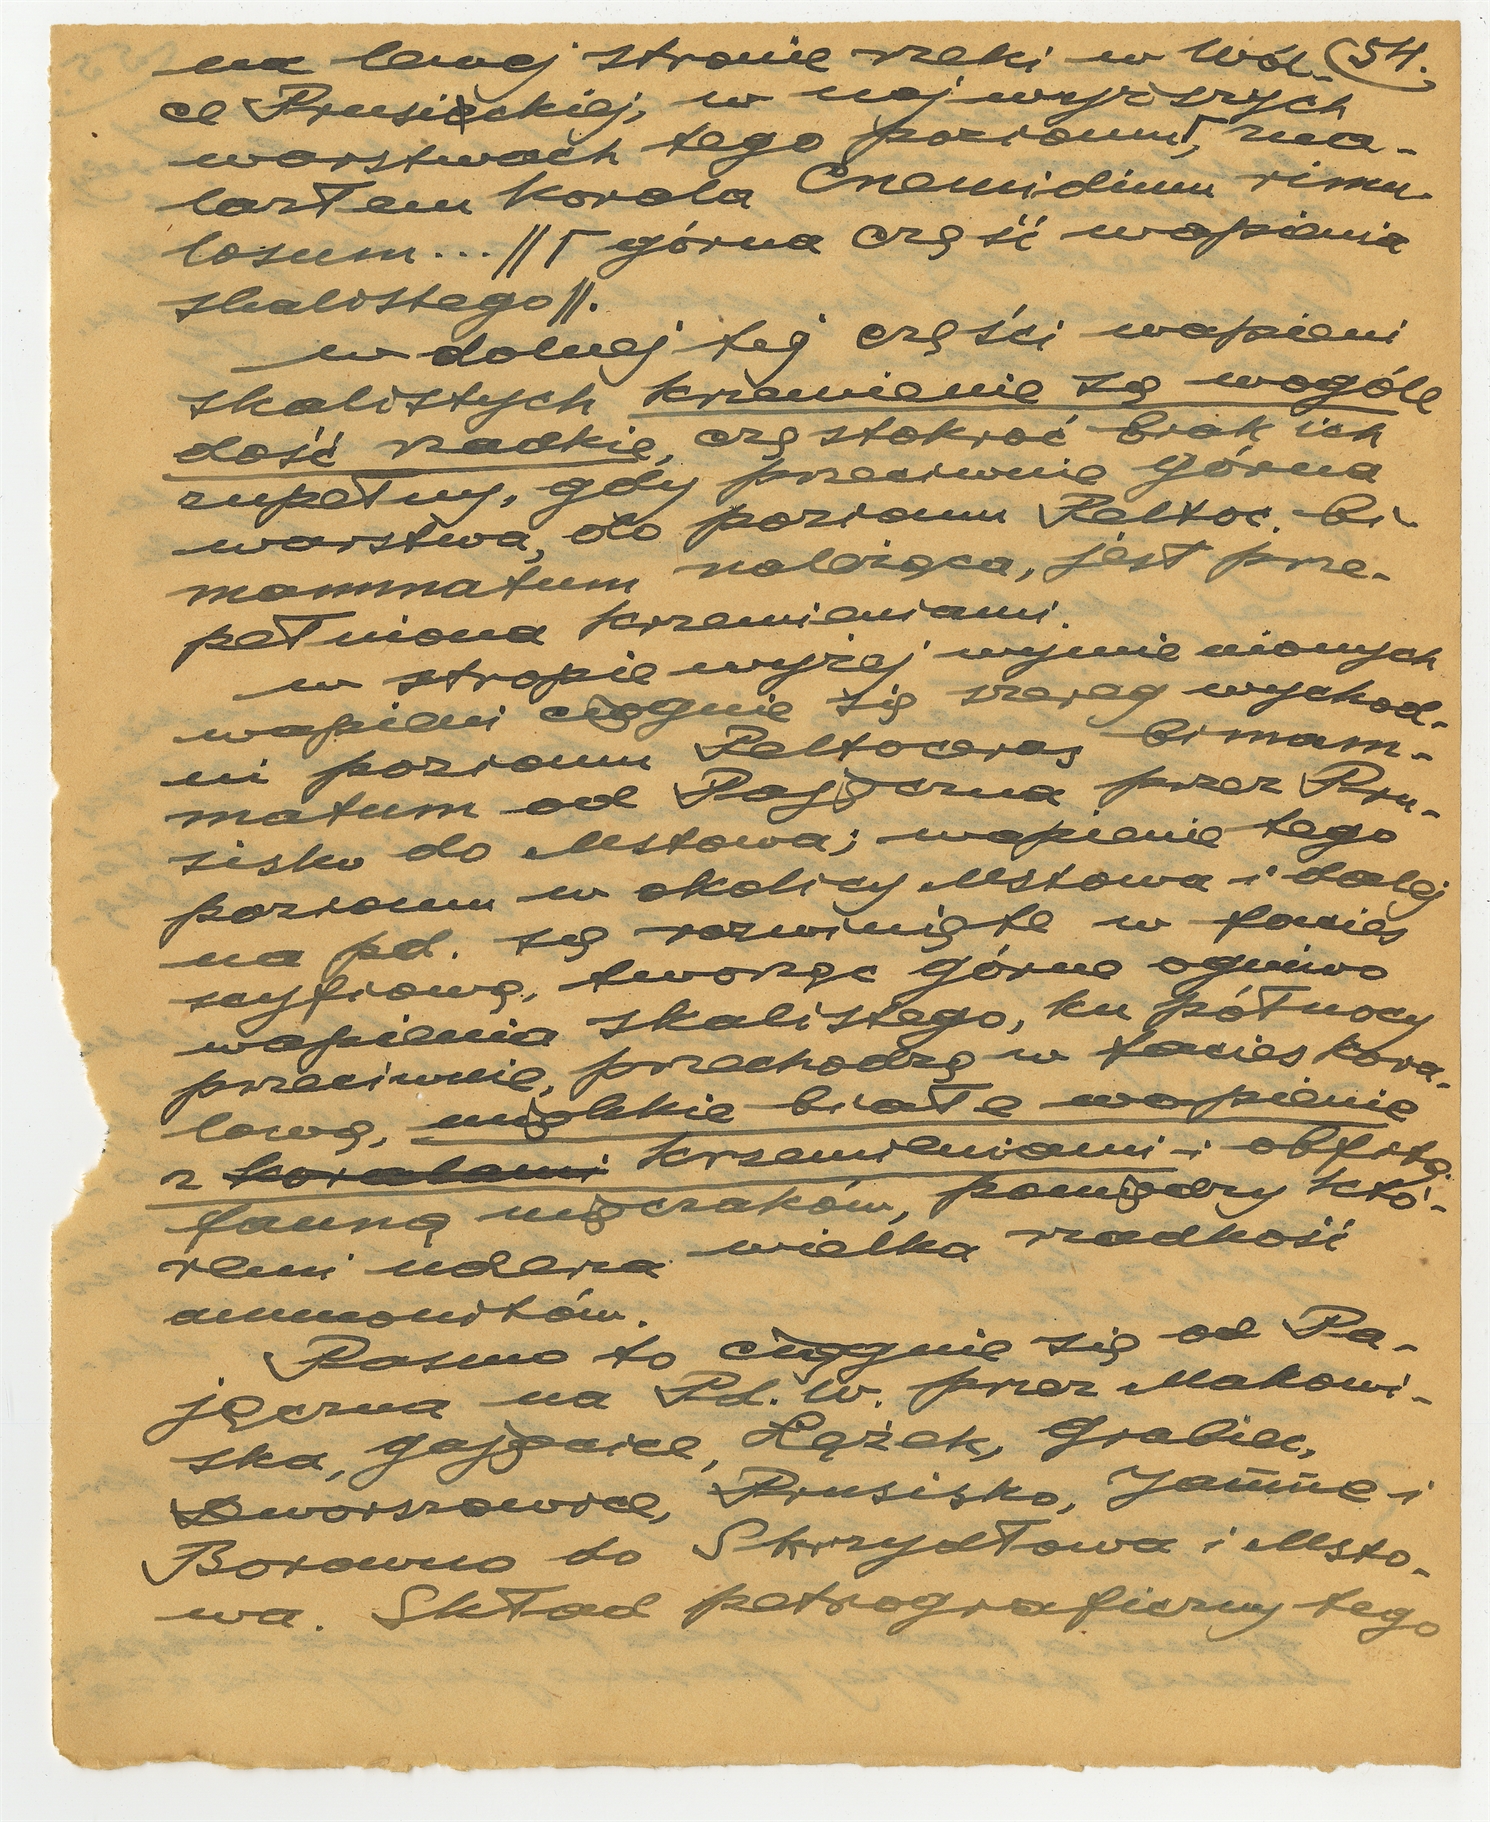 na lewej stronie rzeki w Wól- (54.
ce Prusieckiej, w najwyższych
warstwach tego poziomu, zna-
lazłem korala Cnemidium rimu-
losum...//[ górna część wapienia
skalistego//.
w dolnej tej części wapieni
skalistych krzemienie są wogóle
dość rzadkie, częstokroć brak ich
zupełny, gdy przeciwnie górna
warstwa, do poziomu Peltoc. bi-
mammatum należąca, jest prze-
pełniona krzemieniami.
w stropie wyżej wymienionych
wapieni ciągnie się szereg wychod-
ni poziomu Peltoceras bimam-
matum od Pajęczna przez Pru-
sisko do Mstowa; wapienie tego
poziomu w okolicy Mstowa i dalej
na pd. są rozwinięte w facies
scyfiową, tworząc górne ogniwo
wapienia skalistego, ku północy
przeciwnie, przechodzą w facies kora-
lową, miękkie białe wapienie
z koralami krzemieniami i obfitą
fauną mięczaków, pomiędzy któ-
remi uderza wielka rzadkość
ammonitów.
Pasmo to ciągnie się od Pa-
jęczna na Pd. W. przez Makowi-
ska, Gajęcice, Łężek, Grabiec,
Dworszowice, Prusisko, Jamne i
Borowno do Skrzydlowa i Msto-
wa. Skład petrograficzny tego